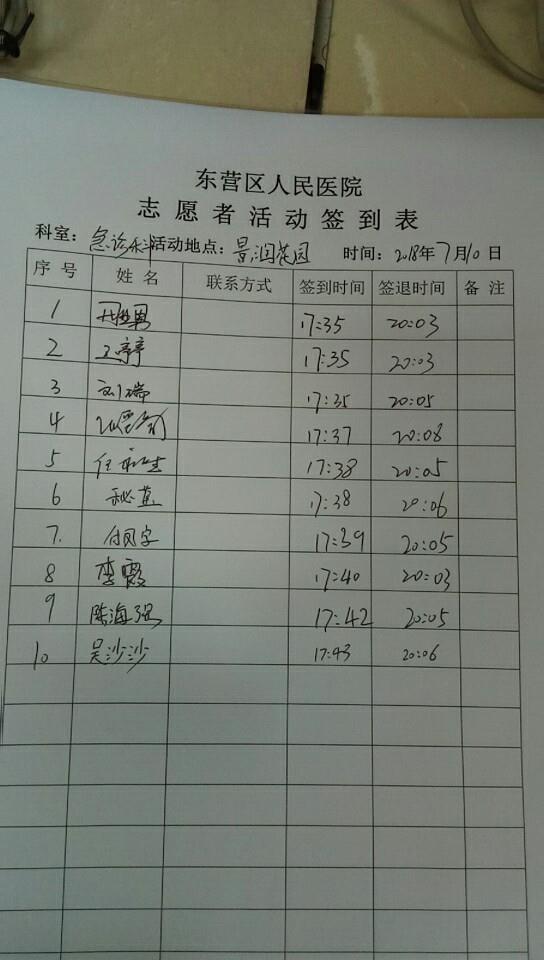 东营区人民医院
志愿者活动签到表
科室：急诊科 活动地点：景润花园 时间：2018年7月10日
序号 姓名 联系方式 签到时间 签退时间 备注
1 17:35 20:03
2 王亭亭 17:35 20:03
3 刘瑞 17:35 20:05
4 17:37 20:08
5 17:38 20:05
6 17:38 20:06
7. 17:39 20:05
8 李霞 17:40 20:03
9 陈海强 17:42 20:05
10 吴沙沙 17:43 20:06